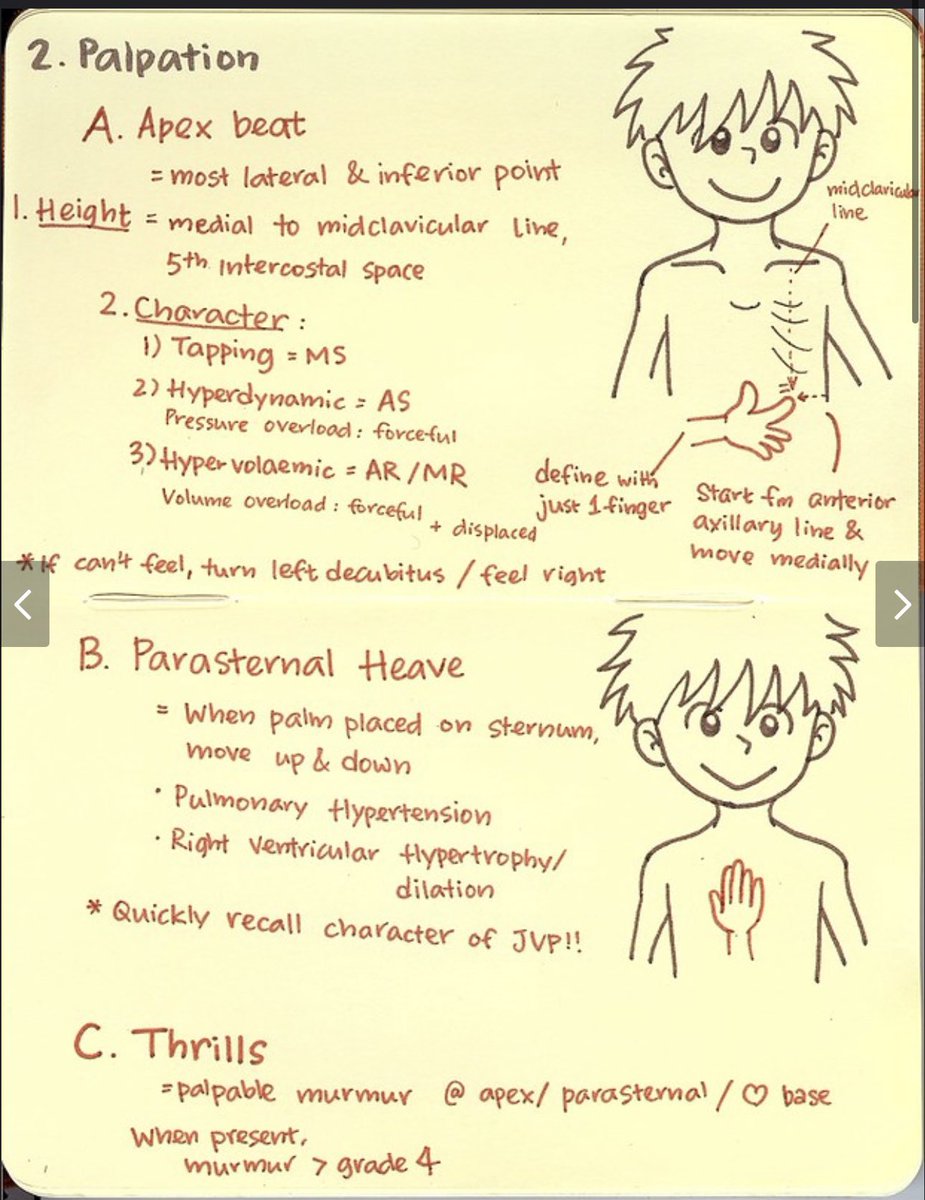 2. Palpation
A. Apex beat
= most lateral & inferior point
1. Height = medial to midclavicular line,
5th intercostal space
2. Character :
1) Tapping = MS
2) Hyperdynamic = AS
Pressure overload : forceful
3) Hypervolaemic = AR/MR
Volume overload : forceful
+ displaced
*if can't feel, turn left decubitus / feel right
midclavicular
line
define with
just 1 finger
Start fm anterior
axillary line &
move medially
B. Parasternal Heave
= When palm placed on sternum,
move up & down
· Pulmonary Hypertension
· Right Ventricular Hypertrophy/
dilation
* Quickly recall character of JVP!!
C. Thrills
= palpable murmur @ apex/ parasternal / ♡ base
When present,
murmur > grade 4